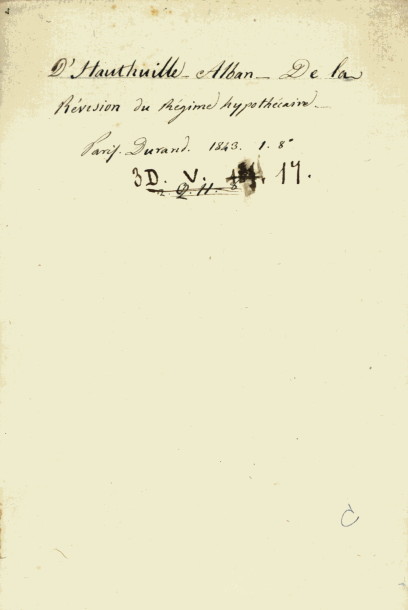 D'Hauthuille - Alban - De la
Révision du Régime hypothécaire -
Paris. Durand. 1843. 1. 8°
3D. V. 17.
2. Q. II.
C